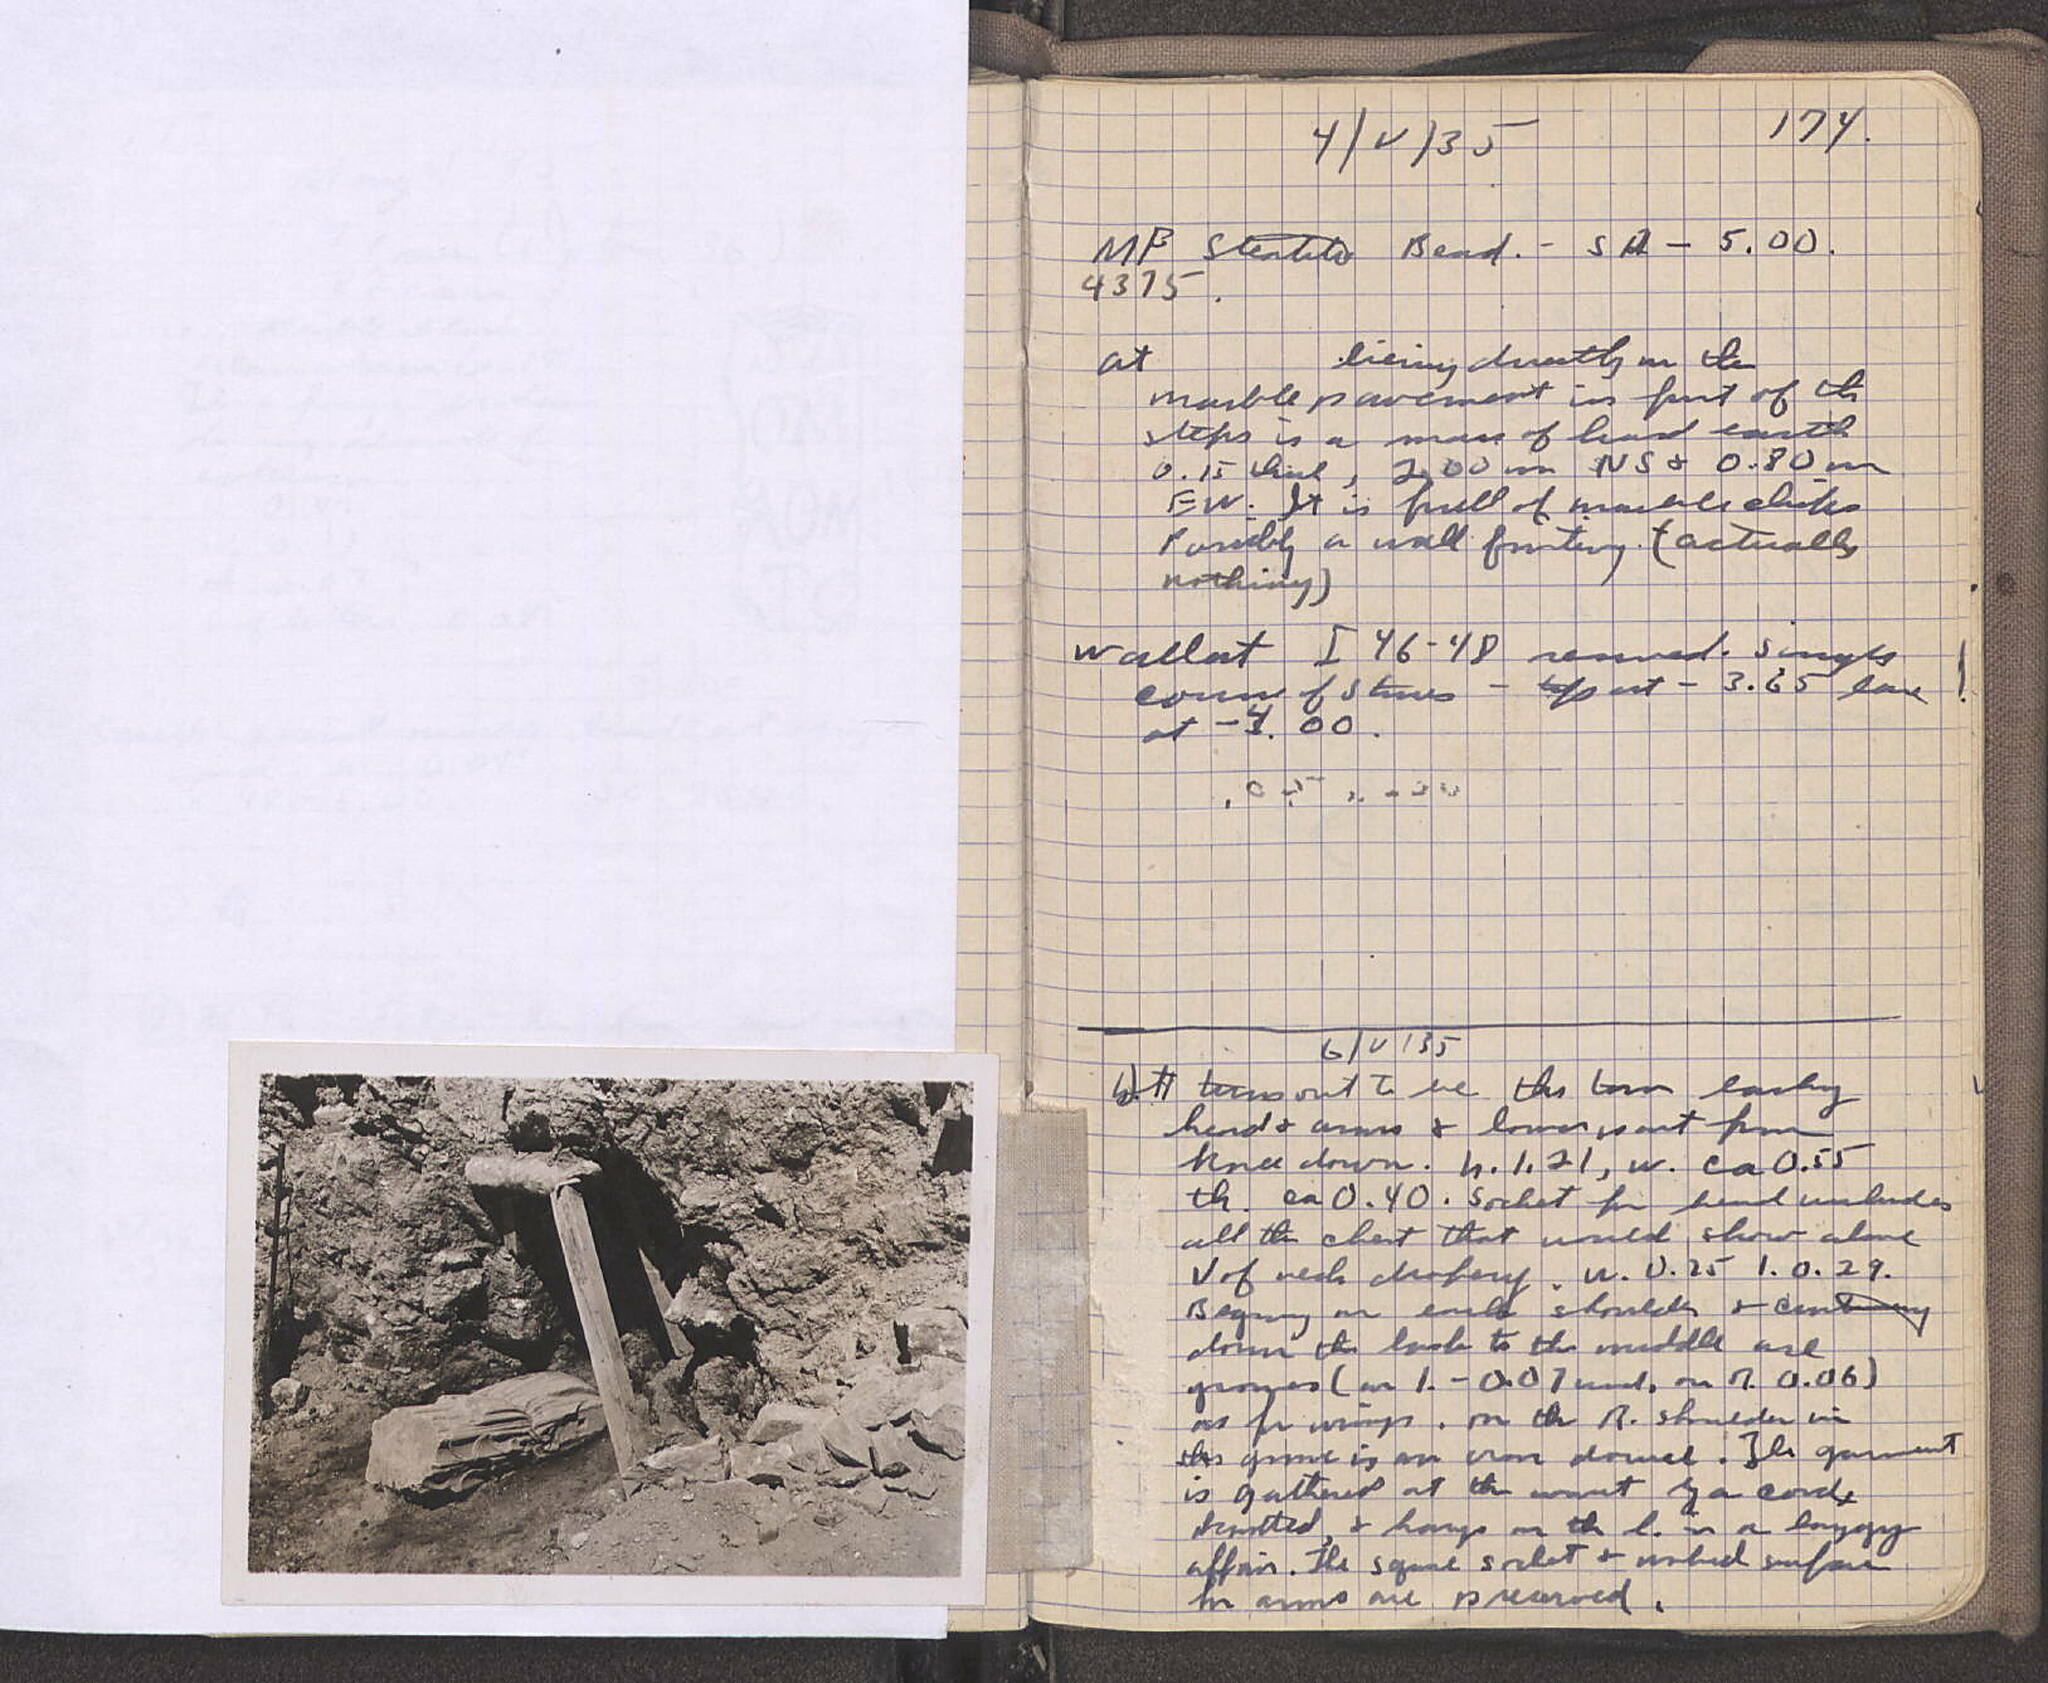 4/V/35
174.
MF Steatite Bead. - SA - 5.00.
4375.
at lieing directly on the
marble pavement in front of the
steps is a mass of hard earth
0.15 thick, 2.00 m NS & 0.80 m
EW. It is full of marble chips
Possibly a wall footing. (actually
nothing)
Wall at I 46-48 removed. Single
course of stones - top at - 3.65 base
at -4.00.
6/V/35
It turns out to be the torso lacking
head & arms & lower part from
knee down. h. 1.21, w. ca 0.55
th. ca 0.40. Socket for head includes
all the chest that would show above
V of neck drapery. w. 0.25 l. 0.29.
Begining on each shoulder &
down the back to the middle are
grooves (on l. - 0.07 wid, on R. 0.06)
as for wings. on the R. shoulder in
this groove is an iron dowel. The garment
is gathered at the waist by a cord,
knotted, & hangs on the l. in a baggy
affair. The square socket & worked surface
for arms are preserved.